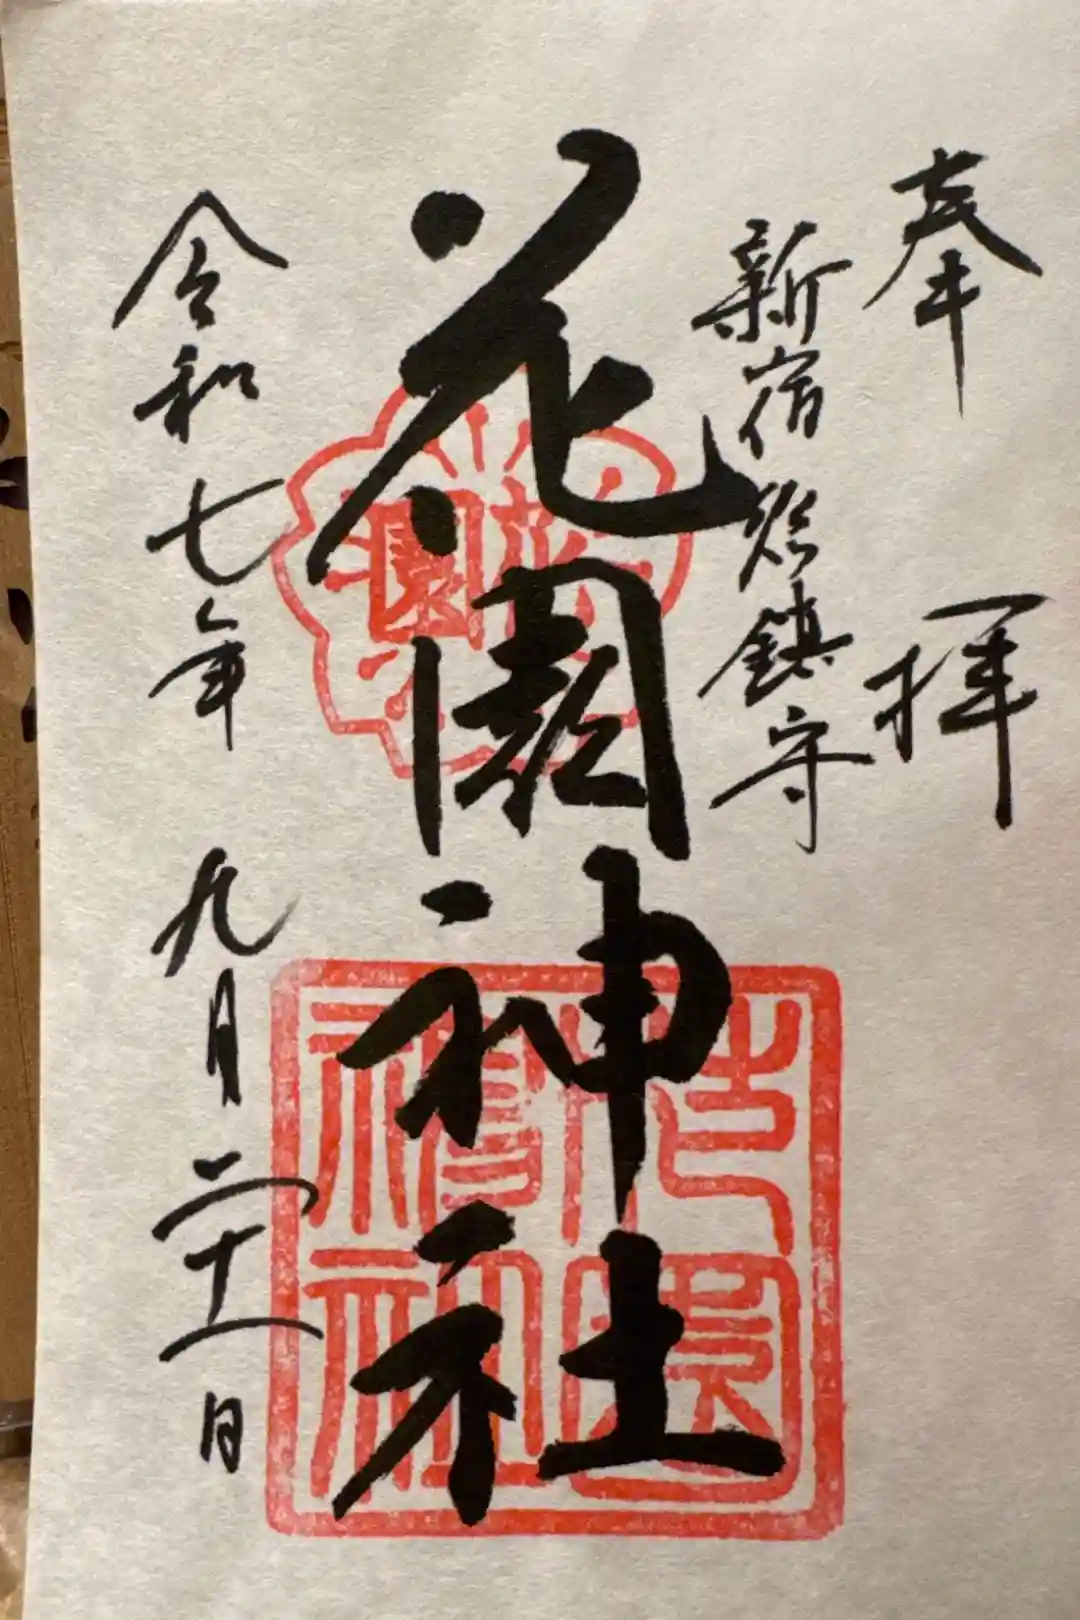 奉拝
新宿総鎮守
花園神社
令和七年九月二十一日
花園神社